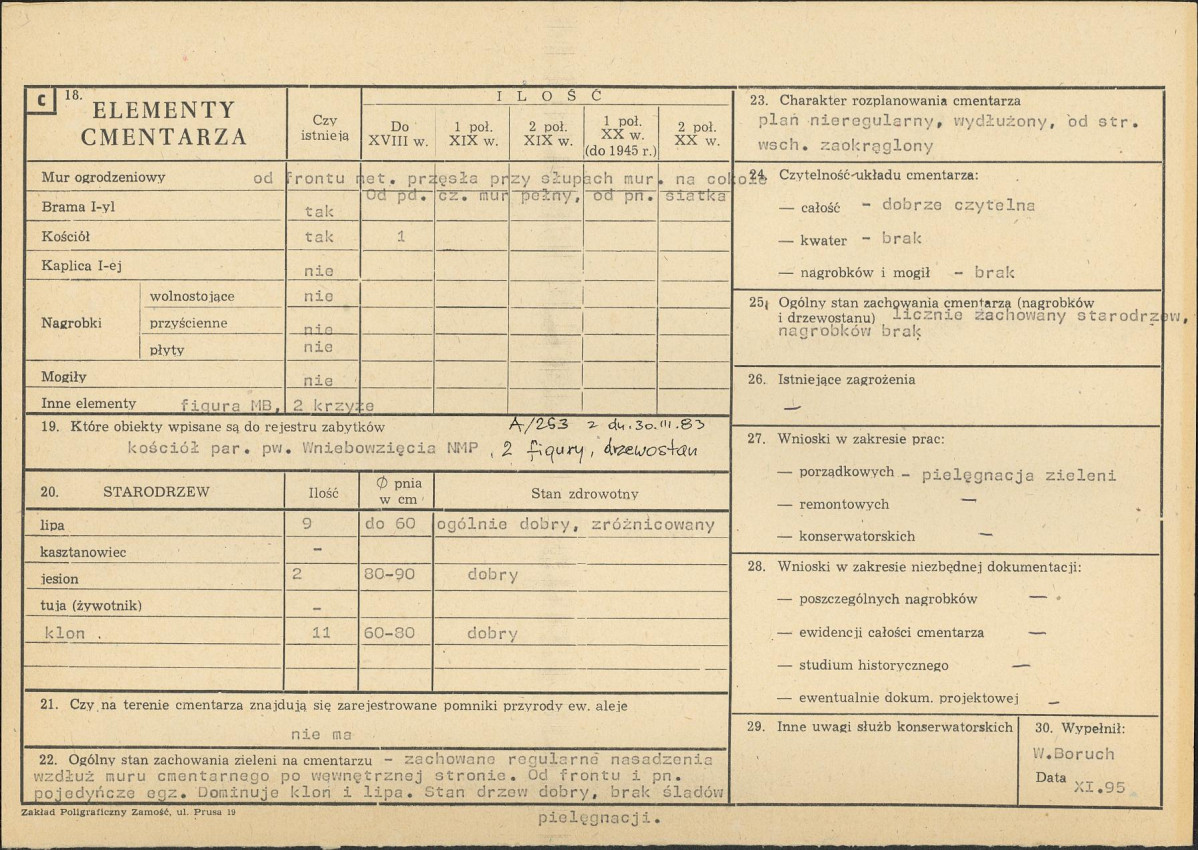 C 18. ELEMENTY CMENTARZA
Czy istnieją
ILOŚĆ
Do XVIII w.
1 poł. XIX w.
2 poł. XIX w.
1 poł. XX w. (do 1945 r.)
2 poł. XX w.
Mur ogrodzeniowy od frontu met. przęsła przy słupach mur. na cokole
Od pd. cz. mur pełny, od pn. siatka
Brama I-yl tak
Kościół tak 1
Kaplica I-ej nie
Nagrobki
wolnostojące nie
przyścienne nie
płyty nie
Mogiły nie
Inne elementy figura MB, 2 krzyże
19. Które obiekty wpisane są do rejestru zabytków A/263 z dn. 30.III.83
kościół par. pw. Wniebowzięcia NMP, 2 figury, drzewostan
20. STARODRZEW Ilość Ø pnia w cm Stan zdrowotny
lipa 9 do 60 ogólnie dobry, zróżnicowany
kasztanowiec -
jesion 2 80-90 dobry
tuja (żywotnik) -
klon . 11 60-80 dobry
21. Czy na terenie cmentarza znajdują się zarejestrowane pomniki przyrody ew. aleje
nie ma
22. Ogólny stan zachowania zieleni na cmentarzu - zachowane regularne nasadzenia
wzdłuż muru cmentarnego po wewnętrznej stronie. Od frontu i pn.
pojedyńcze egz. Dominuje klon i lipa. Stan drzew dobry, brak śladów
pielęgnacji.
Zakład Poligraficzny Zamość, ul. Prusa 19
23. Charakter rozplanowania cmentarza
plan nieregularny, wydłużony, od str.
wsch. zaokrąglony
24. Czytelność układu cmentarza:
— całość - dobrze czytelna
— kwater - brak
— nagrobków i mogił - brak
25. Ogólny stan zachowania cmentarza (nagrobków
i drzewostanu) licznie zachowany starodrzew,
nagrobków brak
26. Istniejące zagrożenia
—
27. Wnioski w zakresie prac:
— porządkowych - pielęgnacja zieleni
— remontowych —
— konserwatorskich —
28. Wnioski w zakresie niezbędnej dokumentacji:
— poszczególnych nagrobków —
— ewidencji całości cmentarza —
— studium historycznego —
— ewentualnie dokum. projektowej —
29. Inne uwagi służb konserwatorskich
30. Wypełnił:
W.Boruch
Data XI.95